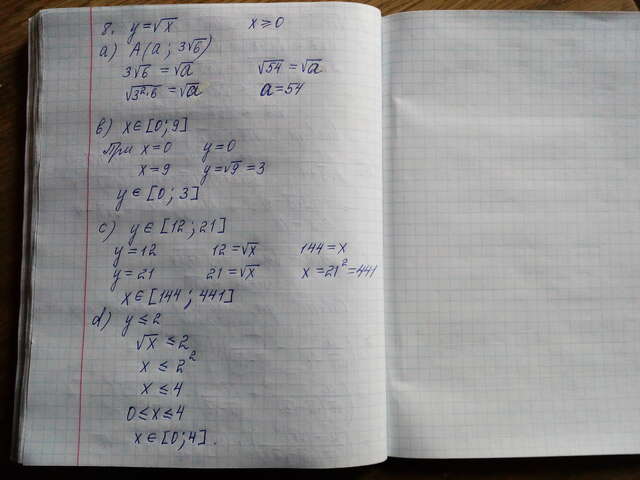 8. y=√x x≥0
a) A(a; 3√6)
3√6 = √a √54 = √a
√3²·6 = √a a=54
b) x∈[0;9]
при x=0 y=0
x=9 y=√9=3
y∈[0;3]
c) y∈[12;21]
y=12 12=√x 144=x
y=21 21=√x x=21²=441
x∈[144;441]
d) y≤2
√x ≤2
x≤2²
x≤4
0≤x≤4
x∈[0;4].